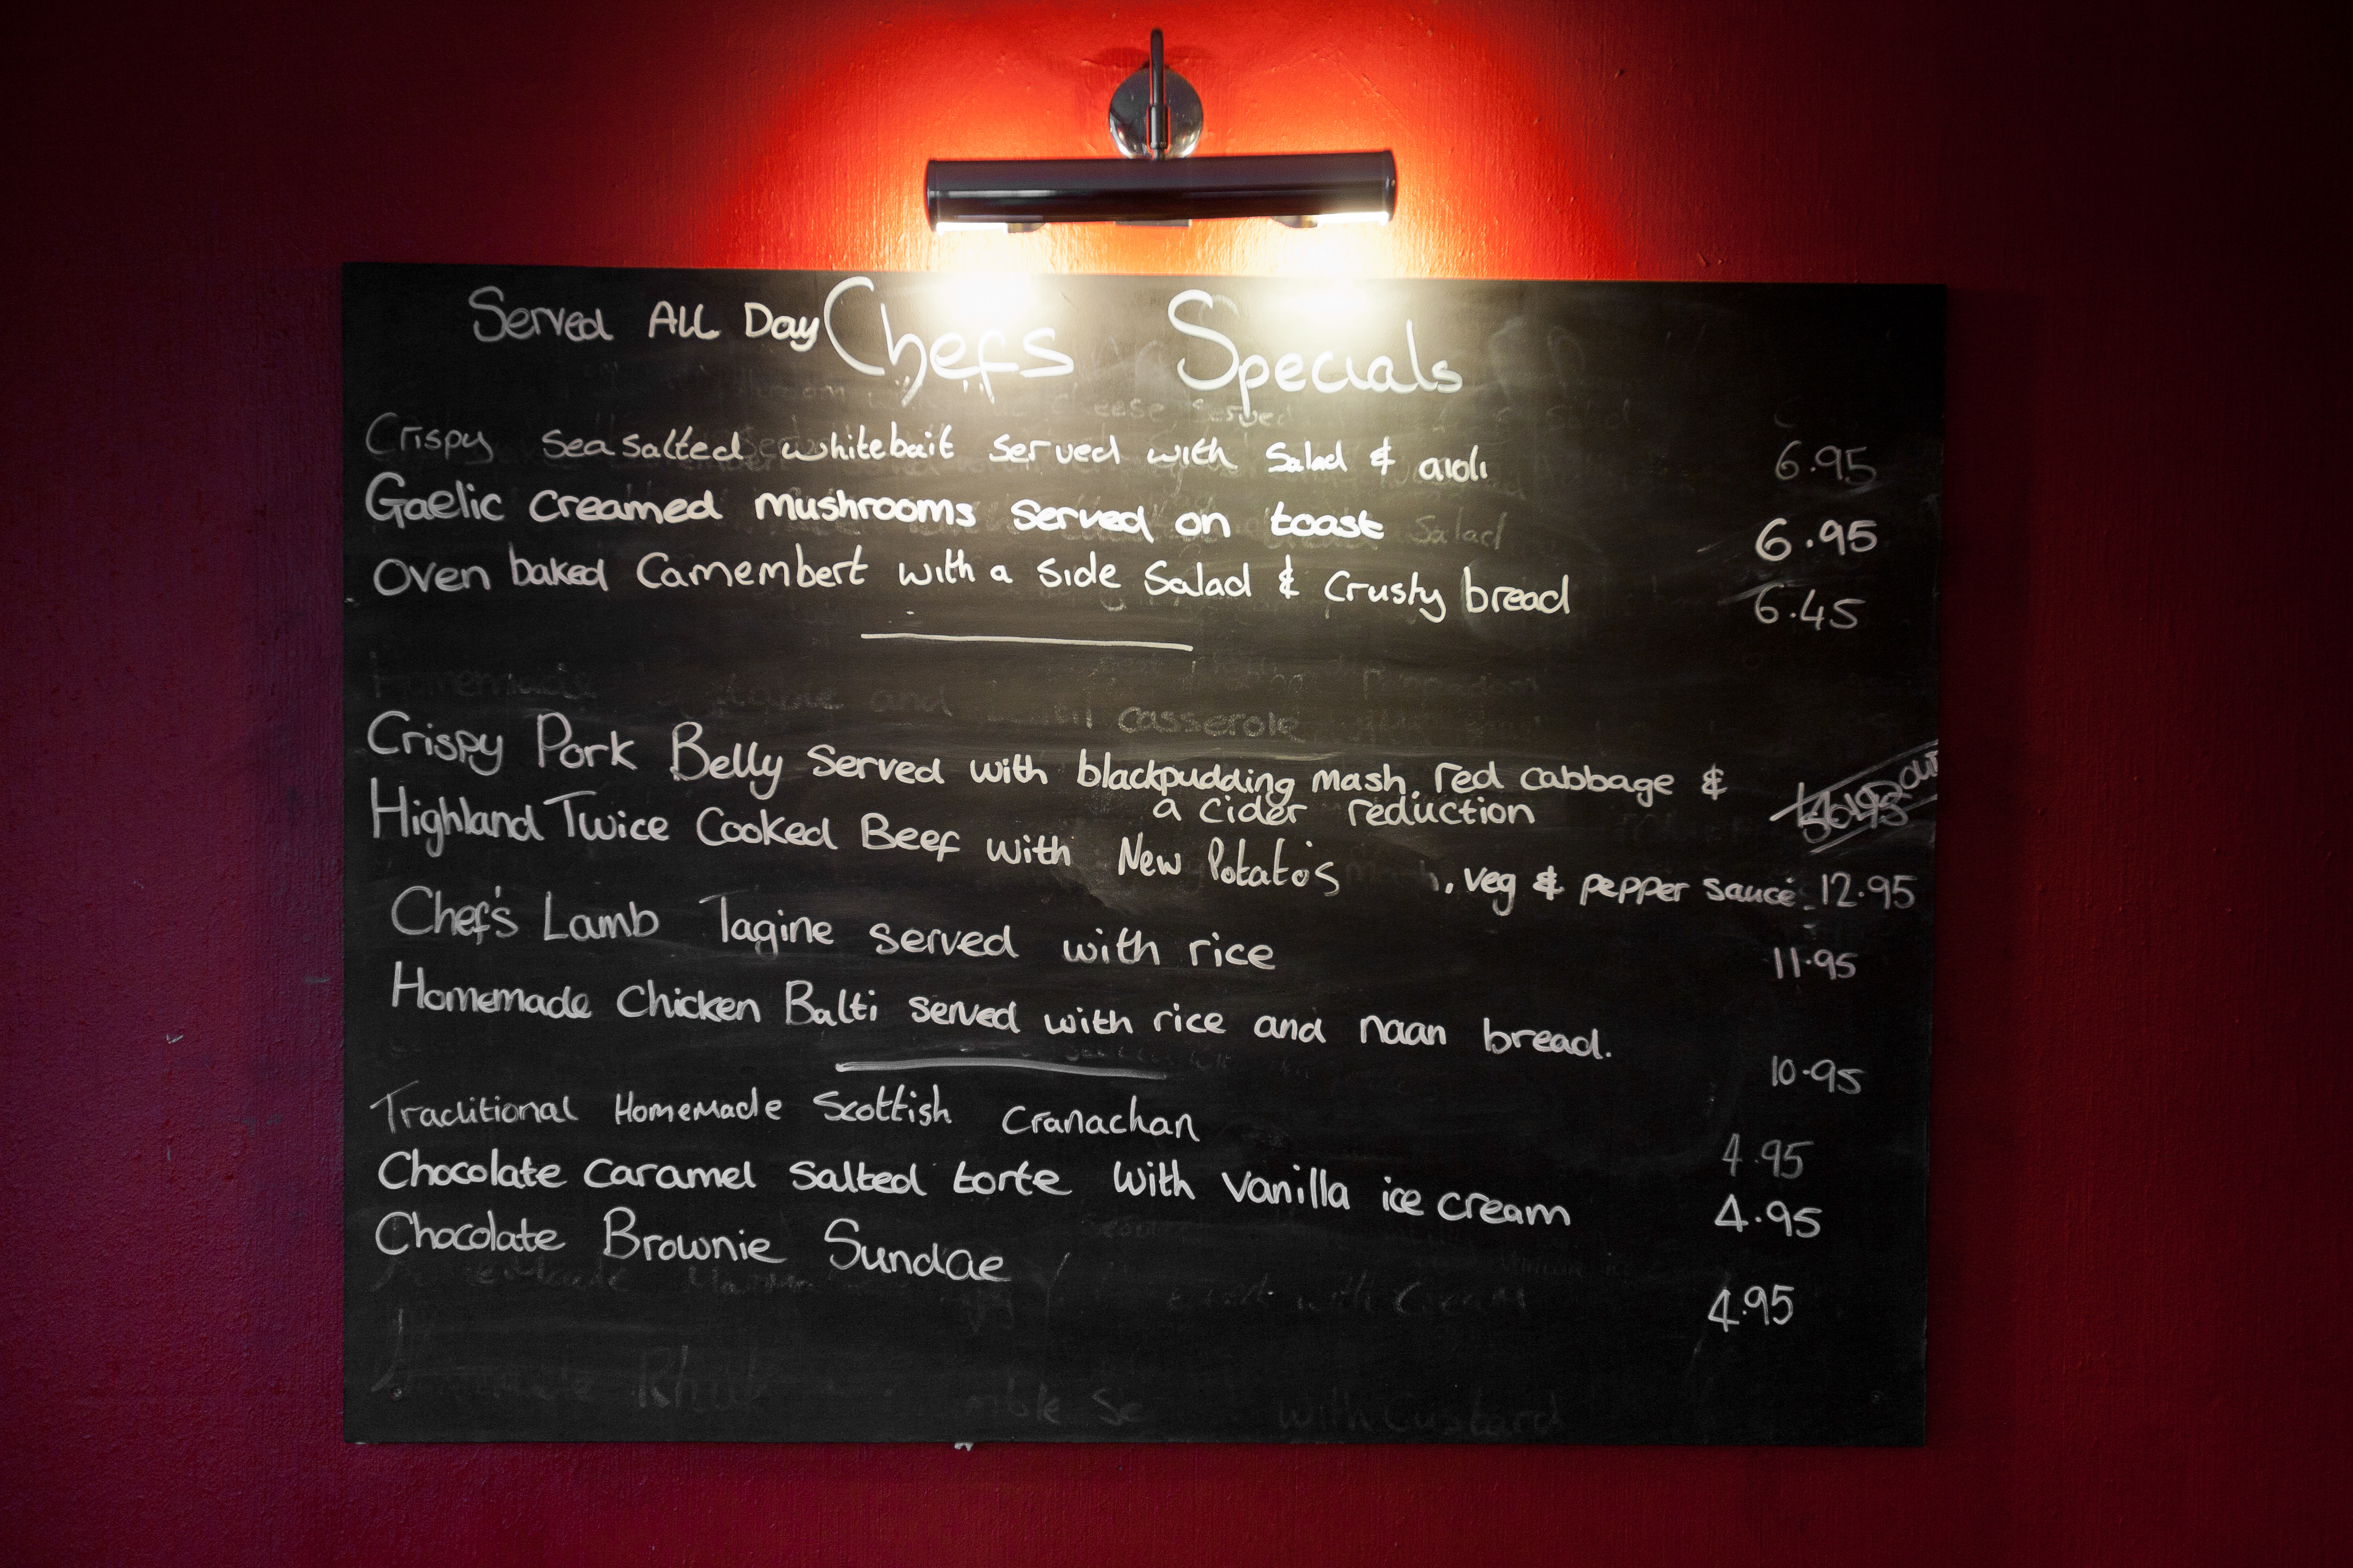 Served ALL Day Chefs Specials
Crispy Sea salted whitebait served with Salad & aioli 6.95
Gaelic creamed mushrooms served on toast 6.95
Oven baked Camembert with a side Salad & Crusty bread 6.45
casserole
Crispy Pork Belly served with blackpudding mash, red cabbage &
a cider reduction
Highland Twice Cooked Beef with New Potato's, veg & pepper sauce 12.95
Chef's Lamb Tagine served with rice 11.95
Homemade Chicken Balti served with rice and naan bread. 10.95
Traditional Homemade Scottish Cranachan 4.95
Chocolate caramel salted torte with vanilla ice cream 4.95
Chocolate Brownie Sundae 4.95
with Custard